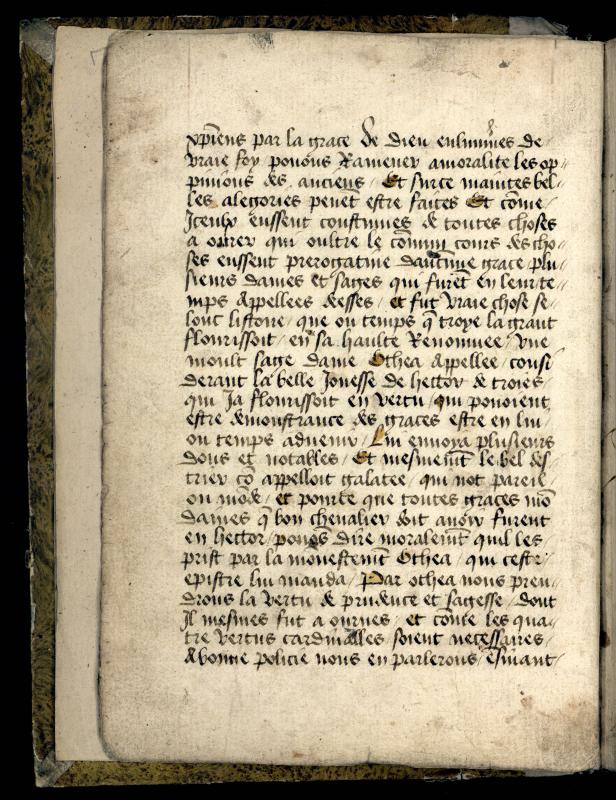 xpiens par la grace de dieu enlumines de
vraie foy pouons Ramener amoralite les op
pinions des anciens / Et surce maintes bel
les alegories peuēt estre faites Et cōme
Iceulx eussent coustumes de toutes choses
a ourer qui oultre le cōmun cours des cho
ses eussent prerogatiue daucune grace plu
sieurs dames et sages qui furēt en leur te
mps Appellees deesses / et fut vraie chose se
lonc listoire / que ou temps q̄ troye la grant
flourissoit / en sa haulte Renommee / vne
moult sage dame Othea Appellee / consi
derant la belle Jonesse de hector de troies
qui Ja flourissoit en vertu / qui pouoient
estre demonstrance des graces estre en lui
ou temps aduenir / Lui enuoya plusieurs
dons et notables / Et mesmemēt le bel des
trier cō appelloit galatee / qui not pareil
ou mōde / et pource que toutes graces mō
daines q̄ bon cheualier doit auoir furent
en hector / pouōs dire moralemt quil les
prist par la monestemēt Othea / qui ceste
epistre lui manda / Par othea nous pren
drons la vertu de prudence et sagesse / dont
Il mesmes fut a ournes / et conte les qua
tre vertus cardinalles soient necessaires
Abonne policie nous en parlerons / ensuiant